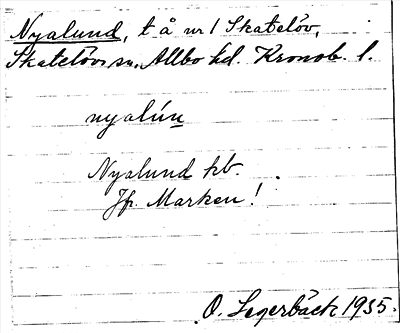 Nyalund, t å nr 1 Skatelöv,
Skatelövs sn, Allbo hd. Kronob. l.
nyalún
Nyalund kb.
Jfr. Marken!
O. Segerbäck 1935.